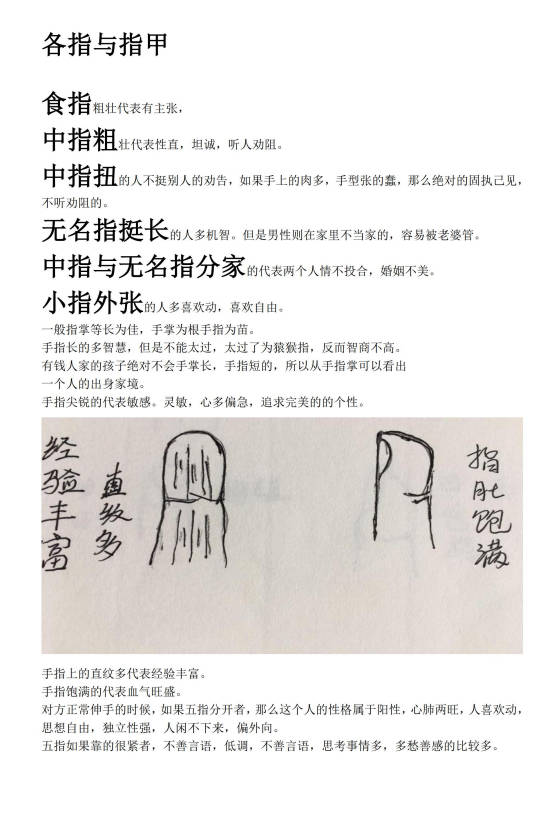 各指与指甲
食指粗壮代表有主张，
中指粗壮代表性直，坦诚，听人劝阻。
中指扭的人不挺别人的劝告，如果手上的肉多，手型张的蠢，那么绝对的固执己见，
不听劝阻的。
无名指挺长的人多机智。但是男性则在家里不当家的，容易被老婆管。
中指与无名指分家的代表两个人情不投合，婚姻不美。
小指外张的人多喜欢动，喜欢自由。
一般指掌等长为佳，手掌为根手指为苗。
手指长的多智慧，但是不能太过，太过了为猿猴指，反而智商不高。
有钱人家的孩子绝对不会手掌长，手指短的，所以从手指掌可以看出
一个人的出身家境。
手指尖锐的代表敏感。灵敏，心多偏急，追求完美的的个性。
经验丰富
直纹多
指肚饱满
手指上的直纹多代表经验丰富。
手指饱满的代表血气旺盛。
对方正常伸手的时候，如果五指分开者，那么这个人的性格属于阳性，心肺两旺，人喜欢动，
思想自由，独立性强，人闲不下来，偏外向。
五指如果靠的很紧者，不善言语，低调，不善言语，思考事情多，多愁善感的比较多。